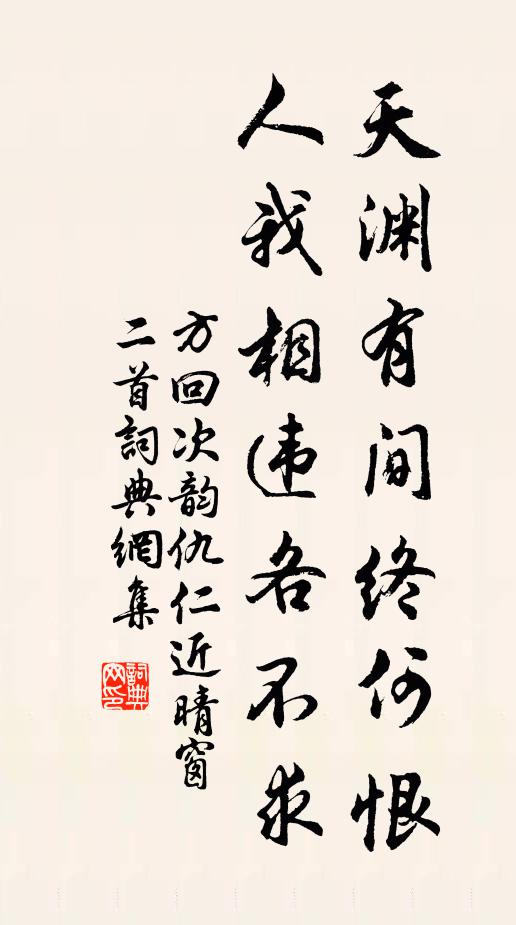 天渊有间终何恨
人我相违各不求
方回次韵仇仁近晴窗
二首詞典網集
詞典网印